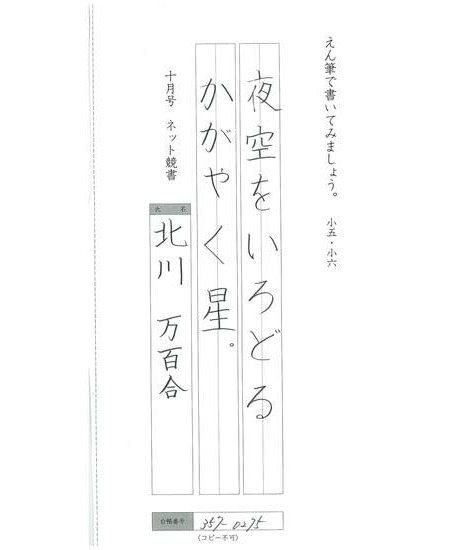 えん筆で書いてみましょう。 小五・小六
夜空をいろどる
かがやく星。
十月号 ネット競書
氏名
北川 万百合
合格番号 357-0275
(コピー不可)